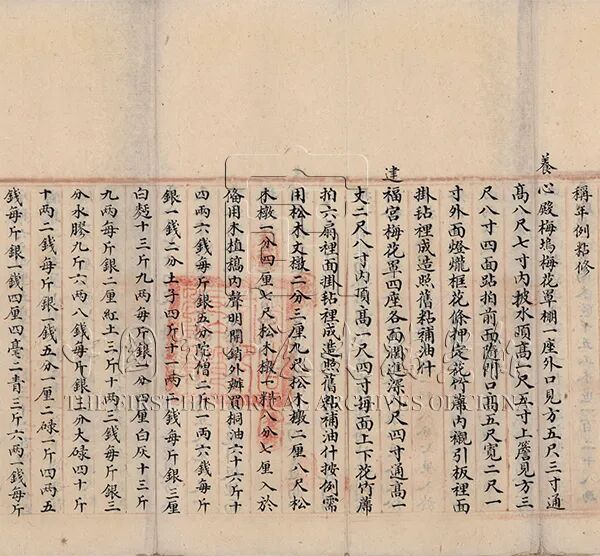 稱年例粘修
養心殿梅塢梅花罩棚一座外口見方五尺三寸通
高八尺七寸內披水頭高一尺五寸上簷見方三
尺八寸四面跕拍前面隨門口高五尺寬二尺一
寸外面燈爖框花條押定花竹蓆內襯引板裡面
掛毡裡成造照舊粘補油什
建福宮梅花罩四座各面濶進深八尺四寸通高一
丈二尺八寸內頂高一尺四寸每面上下花竹蓆
拍六扇裡面掛毡裡成造照舊粘補油什按例需
用松木丈橔二分三厘九尺松木橔二厘八尺松
木橔一分四厘七尺松木橔十料八分七厘入於
備用木植稿內聲明開銷外辦買桐油六十六斤十
四兩六錢每斤銀五分陀僧二斤一兩六錢每斤
銀一錢二分土子四斤十一兩一錢每斤銀三厘
白麪十三斤九兩每斤銀一分四厘白灰十三斤
九兩每斤銀二厘紅土三斤十兩二錢每斤銀三
分水膠九斤六兩八錢每斤銀五分大碌四十斤
十兩二錢每斤銀一錢五分一厘二碌一斤四兩五
錢每斤銀一錢四厘四毫二青三斤六兩一錢每斤
THE FIRST HISTORICAL ARCHIVES OF CHINA